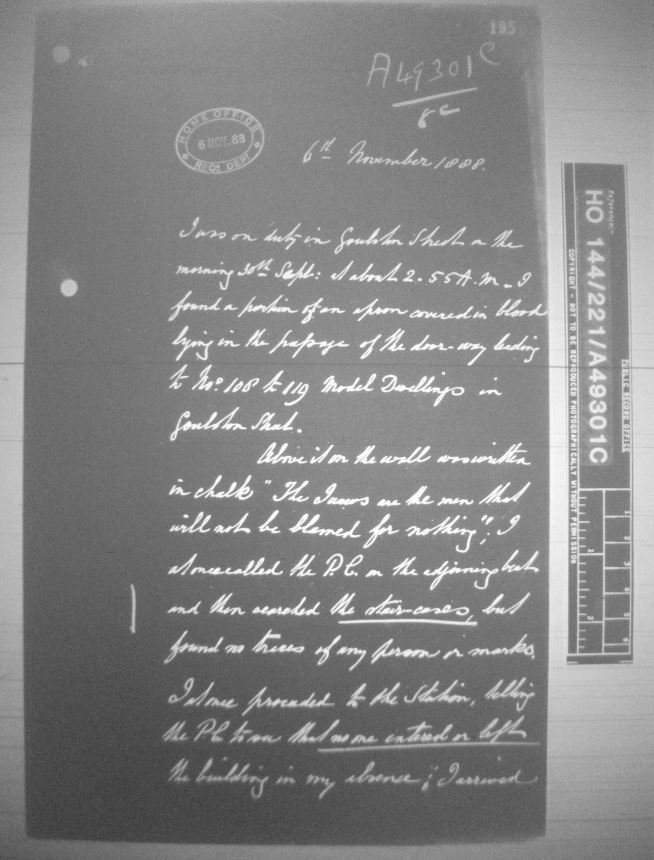 195
A49301C
8c
HOME OFFICE
6 NOV. 88
RECD. DEPT
6th November 1888.
I was on duty in Goulston Street on the
morning 30th Sept: at about 2.55 A.M. I
found a portion of an apron covered in blood
lying in the passage of the door-way leading
to Nos. 108 to 119 Model Dwellings in
Goulston Street.
Above it on the wall was written
in chalk "The Juews are the men that
will not be blamed for nothing"; I
at once called the P.C. on the adjoining beat
and then searched the stair-cases, but
found no traces of any person or marks.
I at once proceeded to the Station, telling
the P.C. to see that no one entered or left
the building in my absence; I arrived
Reference:-
HO 144/221/A49301C
PUBLIC RECORD OFFICE
COPYRIGHT - NOT TO BE REPRODUCED PHOTOGRAPHICALLY WITHOUT PERMISSION
1
2
3
4
5
6
1
2